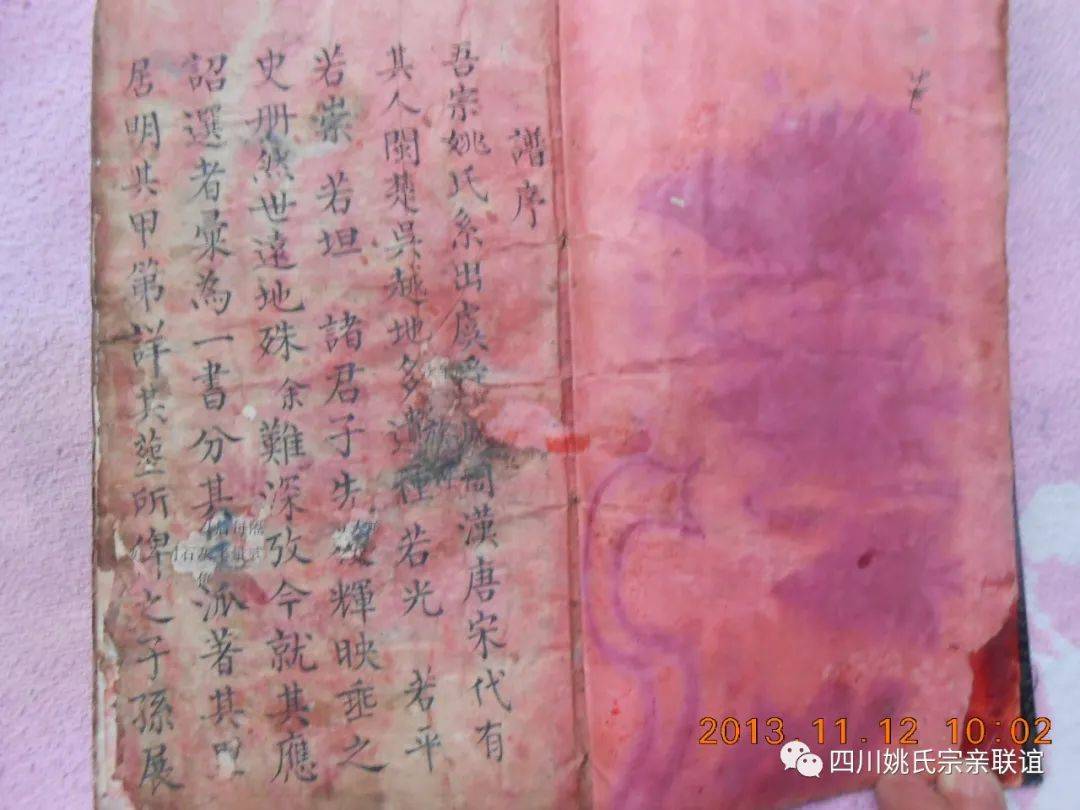 譜序
吾宗姚氏系出虞舜周漢唐宋代有
其人閩楚吳越地多若光 若平
若崇 若坦 諸君子先後輝映垂之
史册然世遠地殊余難深攷今就其應
詔選者彙為一書分其派著其
居明其甲第詳其塋所俾之子孫展
2013.11.12 10:02
四川姚氏宗亲联谊